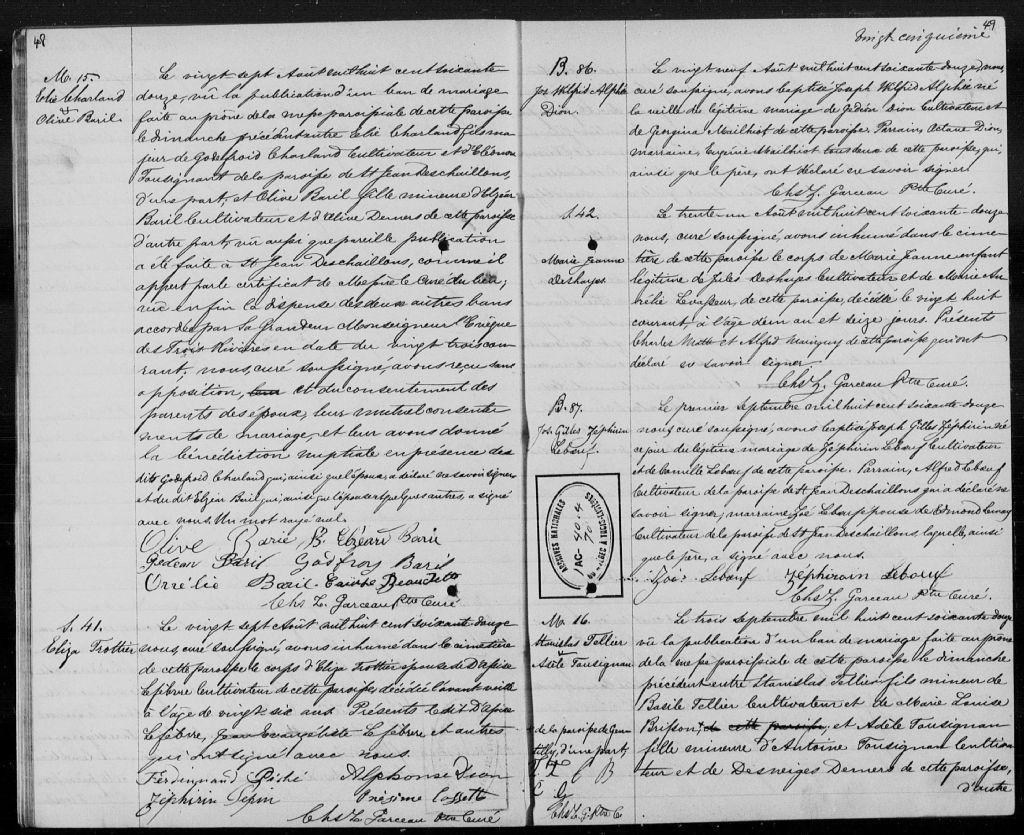 48
M. 15.
Elie Charland
&
Olive Baril.
Le vingt sept Août mil huit cent soixante
douze, vû la publication d'un ban de mariage
faite au prône de la messe paroissiale de cette paroisse
le dimanche précédent entre Elie Charland fils ma
jeur de Godefroid Charland Cultivateur et d'Eléonore
Tousignant de la paroisse de St Jean Deschaillons,
d'une part, et Olive Baril fille mineure d'Elzéar
Baril Cultivateur et d'Olive Demers de cette paroisse
d'autre part, vû aussi que pareille publication
a été faite à St Jean Deschaillons, comme il
appert par le certificat de Messire le Curé du lieu;
vue enfin la dispense des deux autres bans
accordée par sa Grandeur Monseigneur l'Evêque
des Trois Rivières en date du vingt trois cou-
rant, nous, curé soussigné, avons reçu sans
opposition, et du consentement des
parents des époux, leur mutuel consente
ments de mariage, et leur avons donné
la bénédiction nuptiale en présence des
dits Godefroid Charland qui, ainsi que l'époux, a déclaré ne savoir signer
et du dit Elzéar Baril qui, ainsi que l'épouse et quelques autres, a signé
avec nous. Un mot rayé nul.
Olive Barie B. Elzéar Baril
Gédéon Baril Godfroy Baril
Baril
Chs Z. Garceau Ptre Curé
S. 41.
Eliza Trottier
Le vingt sept Août mil huit cent soixante douze
nous, curé soussigné, avons inhumé dans le cimetière
de cette paroisse le corps d'Eliza Trottier épouse de
Lefebvre Cultivateur de cette paroisse, décédée l'avant veille
à l'âge de vingt six ans. Présents le dit
Lefebvre, Jean Evangéliste Lefebvre et autres
qui ont signé avec nous.
Ferdinand Piché Alphonse Dion
Zéphirin Pepin Onésime
Chs Z. Garceau Ptre Curé
49
Vingt cinquième
B. 86.
Jos. Wilfrid Alphée
Dion.
Le vingt neuf Août mil huit cent soixante douze, nous,
curé soussigné, avons baptisé Joseph Wilfrid Alphée né
la veille du légitime mariage de Gédéon Dion Cultivateur et
de Georgina Mailhot de cette paroisse. Parrain, Octave Dion,
marraine, Eugénie Mailhiot tous deux de cette paroisse, qui,
ainsi que le père, ont déclaré ne savoir signer.
Chs Z. Garceau Ptre Curé.
S. 42.
Marie Jeanne
Desharpes
Le trente-un Août mil huit cent soixante-douze
nous, curé soussigné, avons inhumé dans le cime-
tière de cette paroisse le corps de Marie Jeanne enfant
légitime de Jules Desharpes Cultivateur et de Marie Au
rélie Levasseur, de cette paroisse, décédée le vingt huit
courant, à l'âge d'un an et seize jours. Présents
Charles et Alfred de cette paroisse qui ont
déclaré ne savoir signer
Chs Z. Garceau Ptre Curé.
B. 87.
Jos. Gilles Zéphirin
Lebœuf.
Le premier septembre mil huit cent soixante-douze
nous curé soussigné, avons baptisé Joseph Gilles Zéphirin né
ce jour du légitime mariage de Zéphirin Lebœuf Cultivateur
et de Camille Lebœuf de cette paroisse. Parrain, Alfred Lebœuf
Cultivateur de la paroisse de St Jean Deschaillons qui a déclaré ne
savoir signer; marraine, Zoé Lebœuf épouse de Edmond Lemay
Cultivateur de la paroisse de St Jean Deschaillons, laquelle, ainsi
que le père, a signé avec nous.
Zoé Lebœuf Zéphirain Lebœuf
Chs Z. Garceau Ptre Curé.
ARCHIVES NATIONALES
M. 16.
Stanislas Tellier
&
Adèle Tousignan
Le trois septembre mil huit cent soixante-douze
vû la publication d'un ban de mariage faite au prône
de la messe paroissiale de cette paroisse le dimanche
précédent entre Stanislas Tellier fils mineur de
Basile Tellier Cultivateur et de Marie Louise
Brisson, de cette paroisse, et Adèle Tousignan
fille mineure d'Antoine Tousignan Cultiva
teur et de Desneiges Demers de cette paroisse,
d'autre
x de la paroisse de Gen
tilly, d'une part,
Chs Z. G. Ptre C.